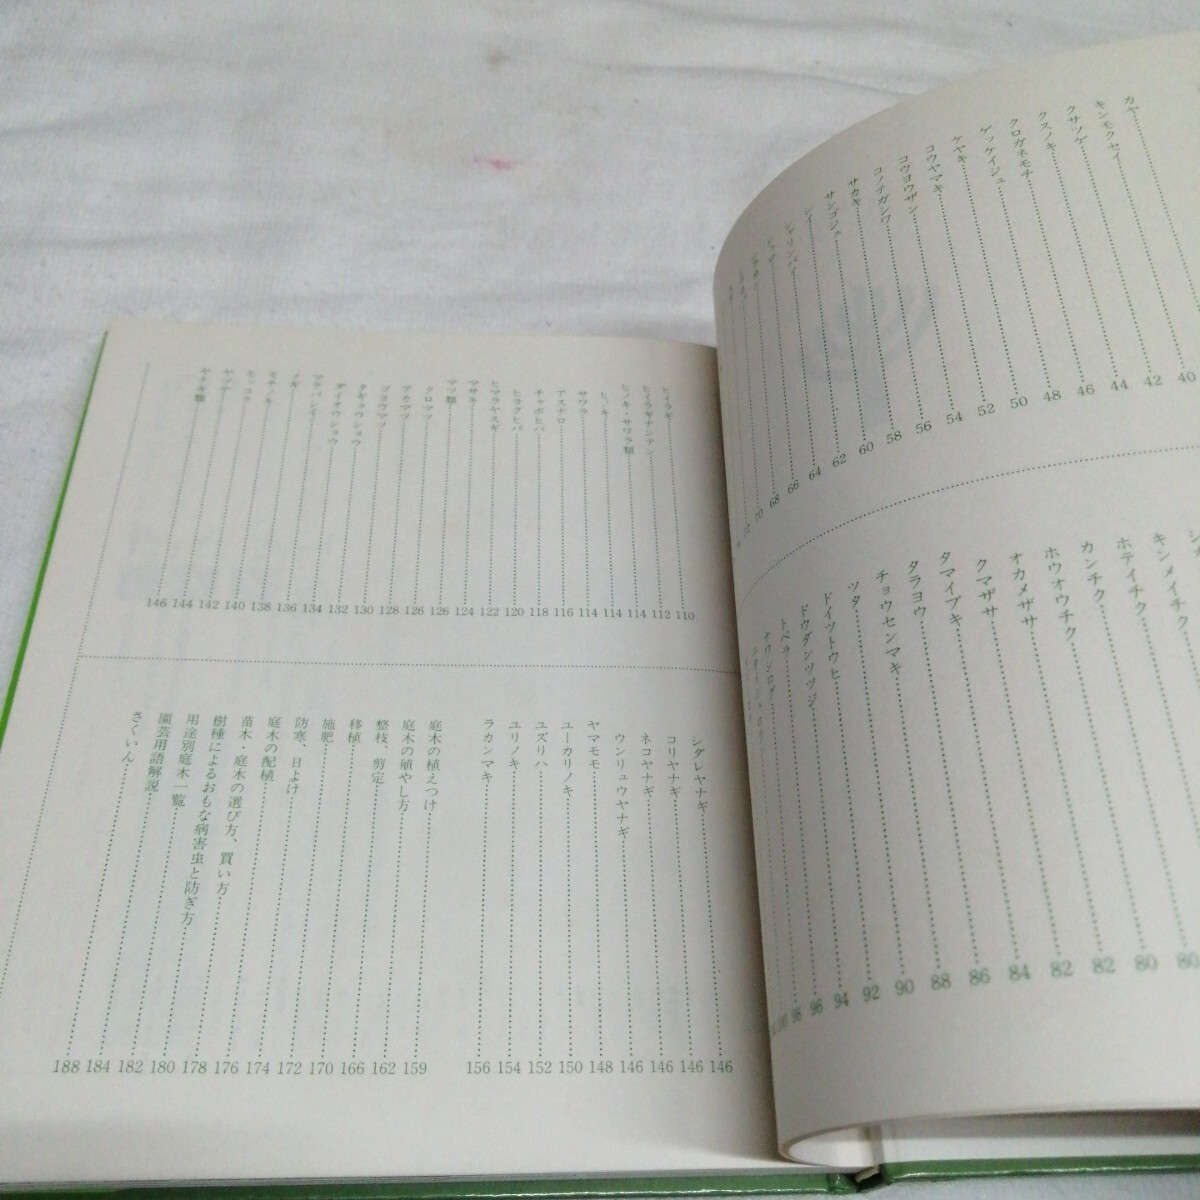 カヤ 40
キンモクセイ 42
クサツゲ 44
クスノキ 46
クロガネモチ 48
ゲッケイジュ 50
ケヤキ 52
コウヤマキ 54
コウヨウザン 56
コノテガシワ 58
サカキ 60
サンゴジュ 62
シイ 64
シャリンバイ 66
シュロ 68
70
72
キンメイチク 80
80
ホテイチク 80
カンチク 82
ホウオウチク 82
オカメザサ 84
クマザサ 86
タマイブキ 88
タラヨウ 90
チョウセンマキ 92
ツタ 94
ドイツトウヒ 96
ドウダンツツジ 98
トベラ 100
ヒイラギ 110
ヒイラギナンテン 112
ヒノキ・サワラ類 114
ヒノキ 114
サワラ 114
アスナロ 116
チャボヒバ 118
ヒヨクヒバ 120
ヒマラヤスギ 122
マサキ 124
マツ類 126
クロマツ 126
アカマツ 128
ゴヨウマツ 128
タギョウショウ 130
ダイオウショウ 132
マテバシイ 134
136
モチノキ 138
モッコク 140
ヤツデ 142
144
ヤナギ類 146
シダレヤナギ 146
コリヤナギ 146
ネコヤナギ 146
ウンリュウヤナギ 146
ヤマモモ 148
ユーカリノキ 150
ユズリハ 152
ユリノキ 154
ラカンマキ 156
庭木の植えつけ 159
庭木の殖やし方 162
整枝、剪定 166
移植 170
施肥 172
防寒、日よけ 174
庭木の配植 176
苗木・庭木の選び方、買い方 178
樹種によるおもな病害虫と防ぎ方 180
用途別庭木一覧 182
園芸用語解説 184
さくいん 188